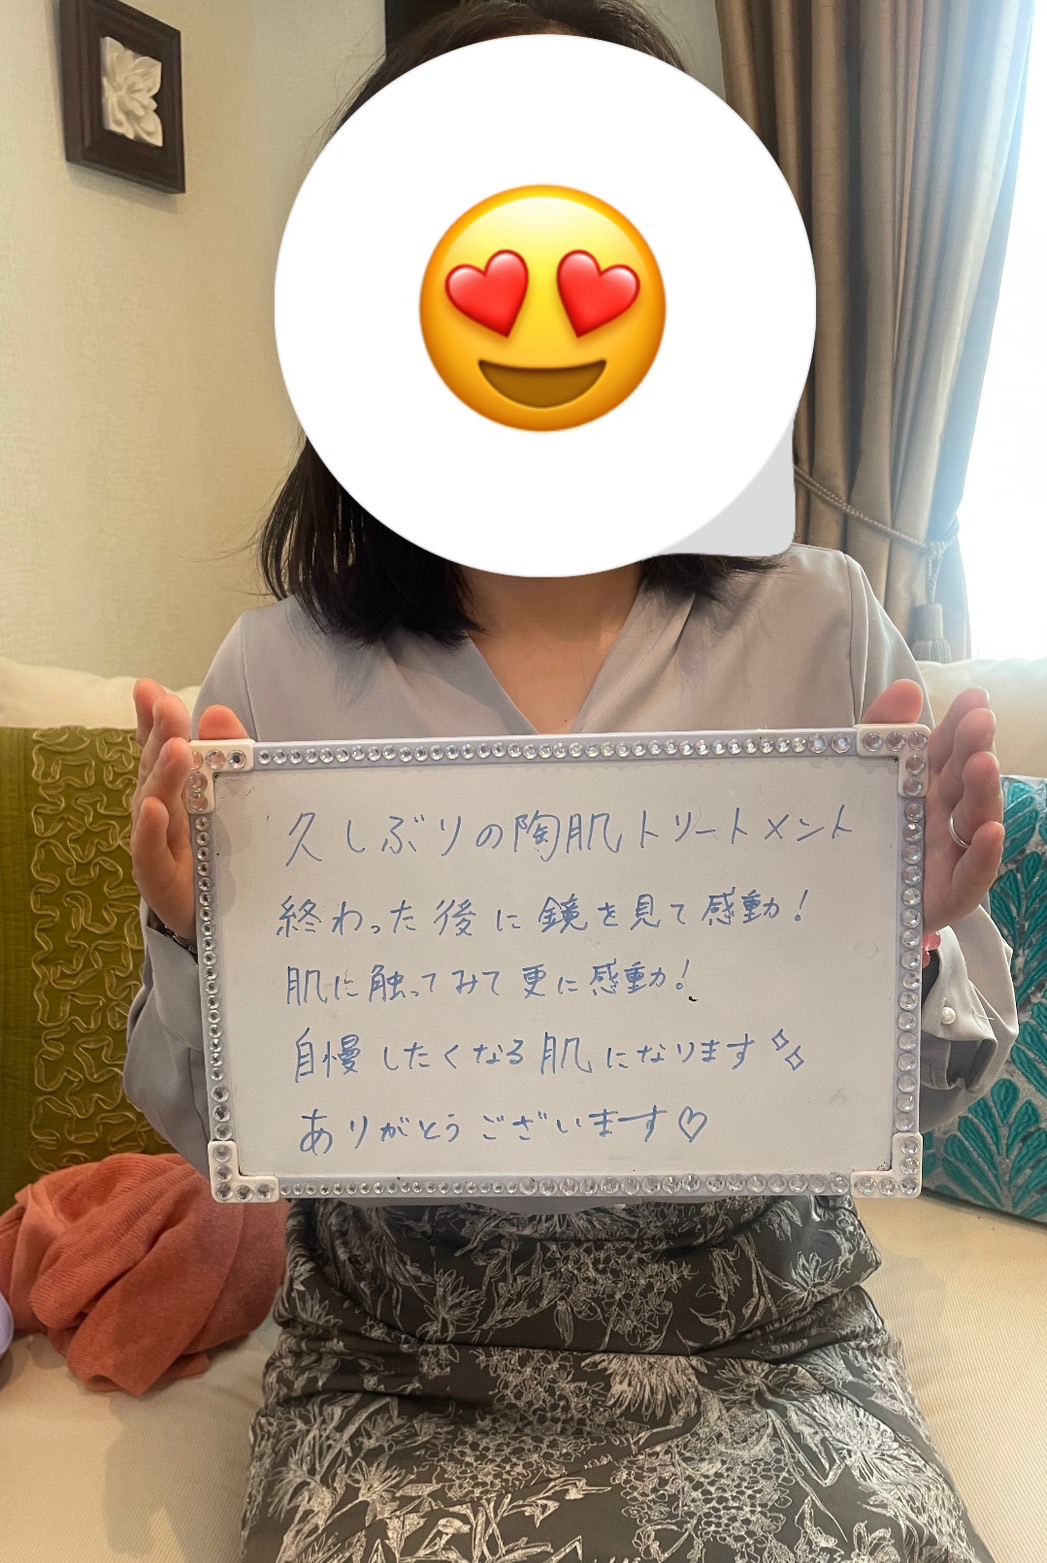 久しぶりの陶肌トリートメント
終わった後に鏡を見て感動！
肌に触ってみて更に感動！
自慢したくなる肌になります✨
ありがとうございます♡